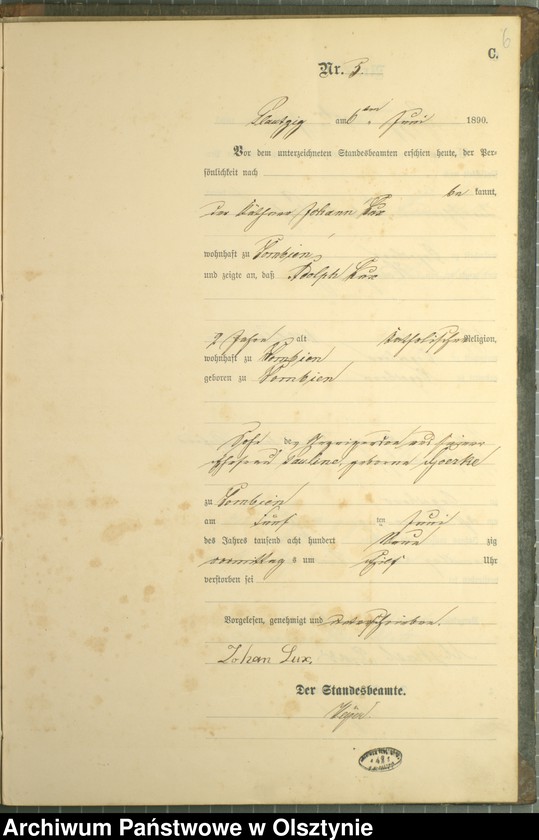 6
C.
Nr. 5.
Plautzig am 6ten Juni 1890.
Vor dem unterzeichneten Standesbeamten erschien heute, der Per-
sönlichkeit nach
be kannt,
der Käthner Johann Lux
wohnhaft zu Dombien,
und zeigte an, daß Adolph Lux
2 Jahre alt katholischer Religion,
wohnhaft zu Dombien
geboren zu Dombien
Sohn des Anzeigenden und seiner
Ehefrau Pauline, geborne Goerke
zu Dombien
am fünf ten Juni
des Jahres tausend acht hundert Neun zig
vormittag s um Uhr
verstorben sei
Vorgelesen, genehmigt und unterschrieben.
Johan Lux,
Der Standesbeamte.
Archiwum Państwowe w Olsztynie